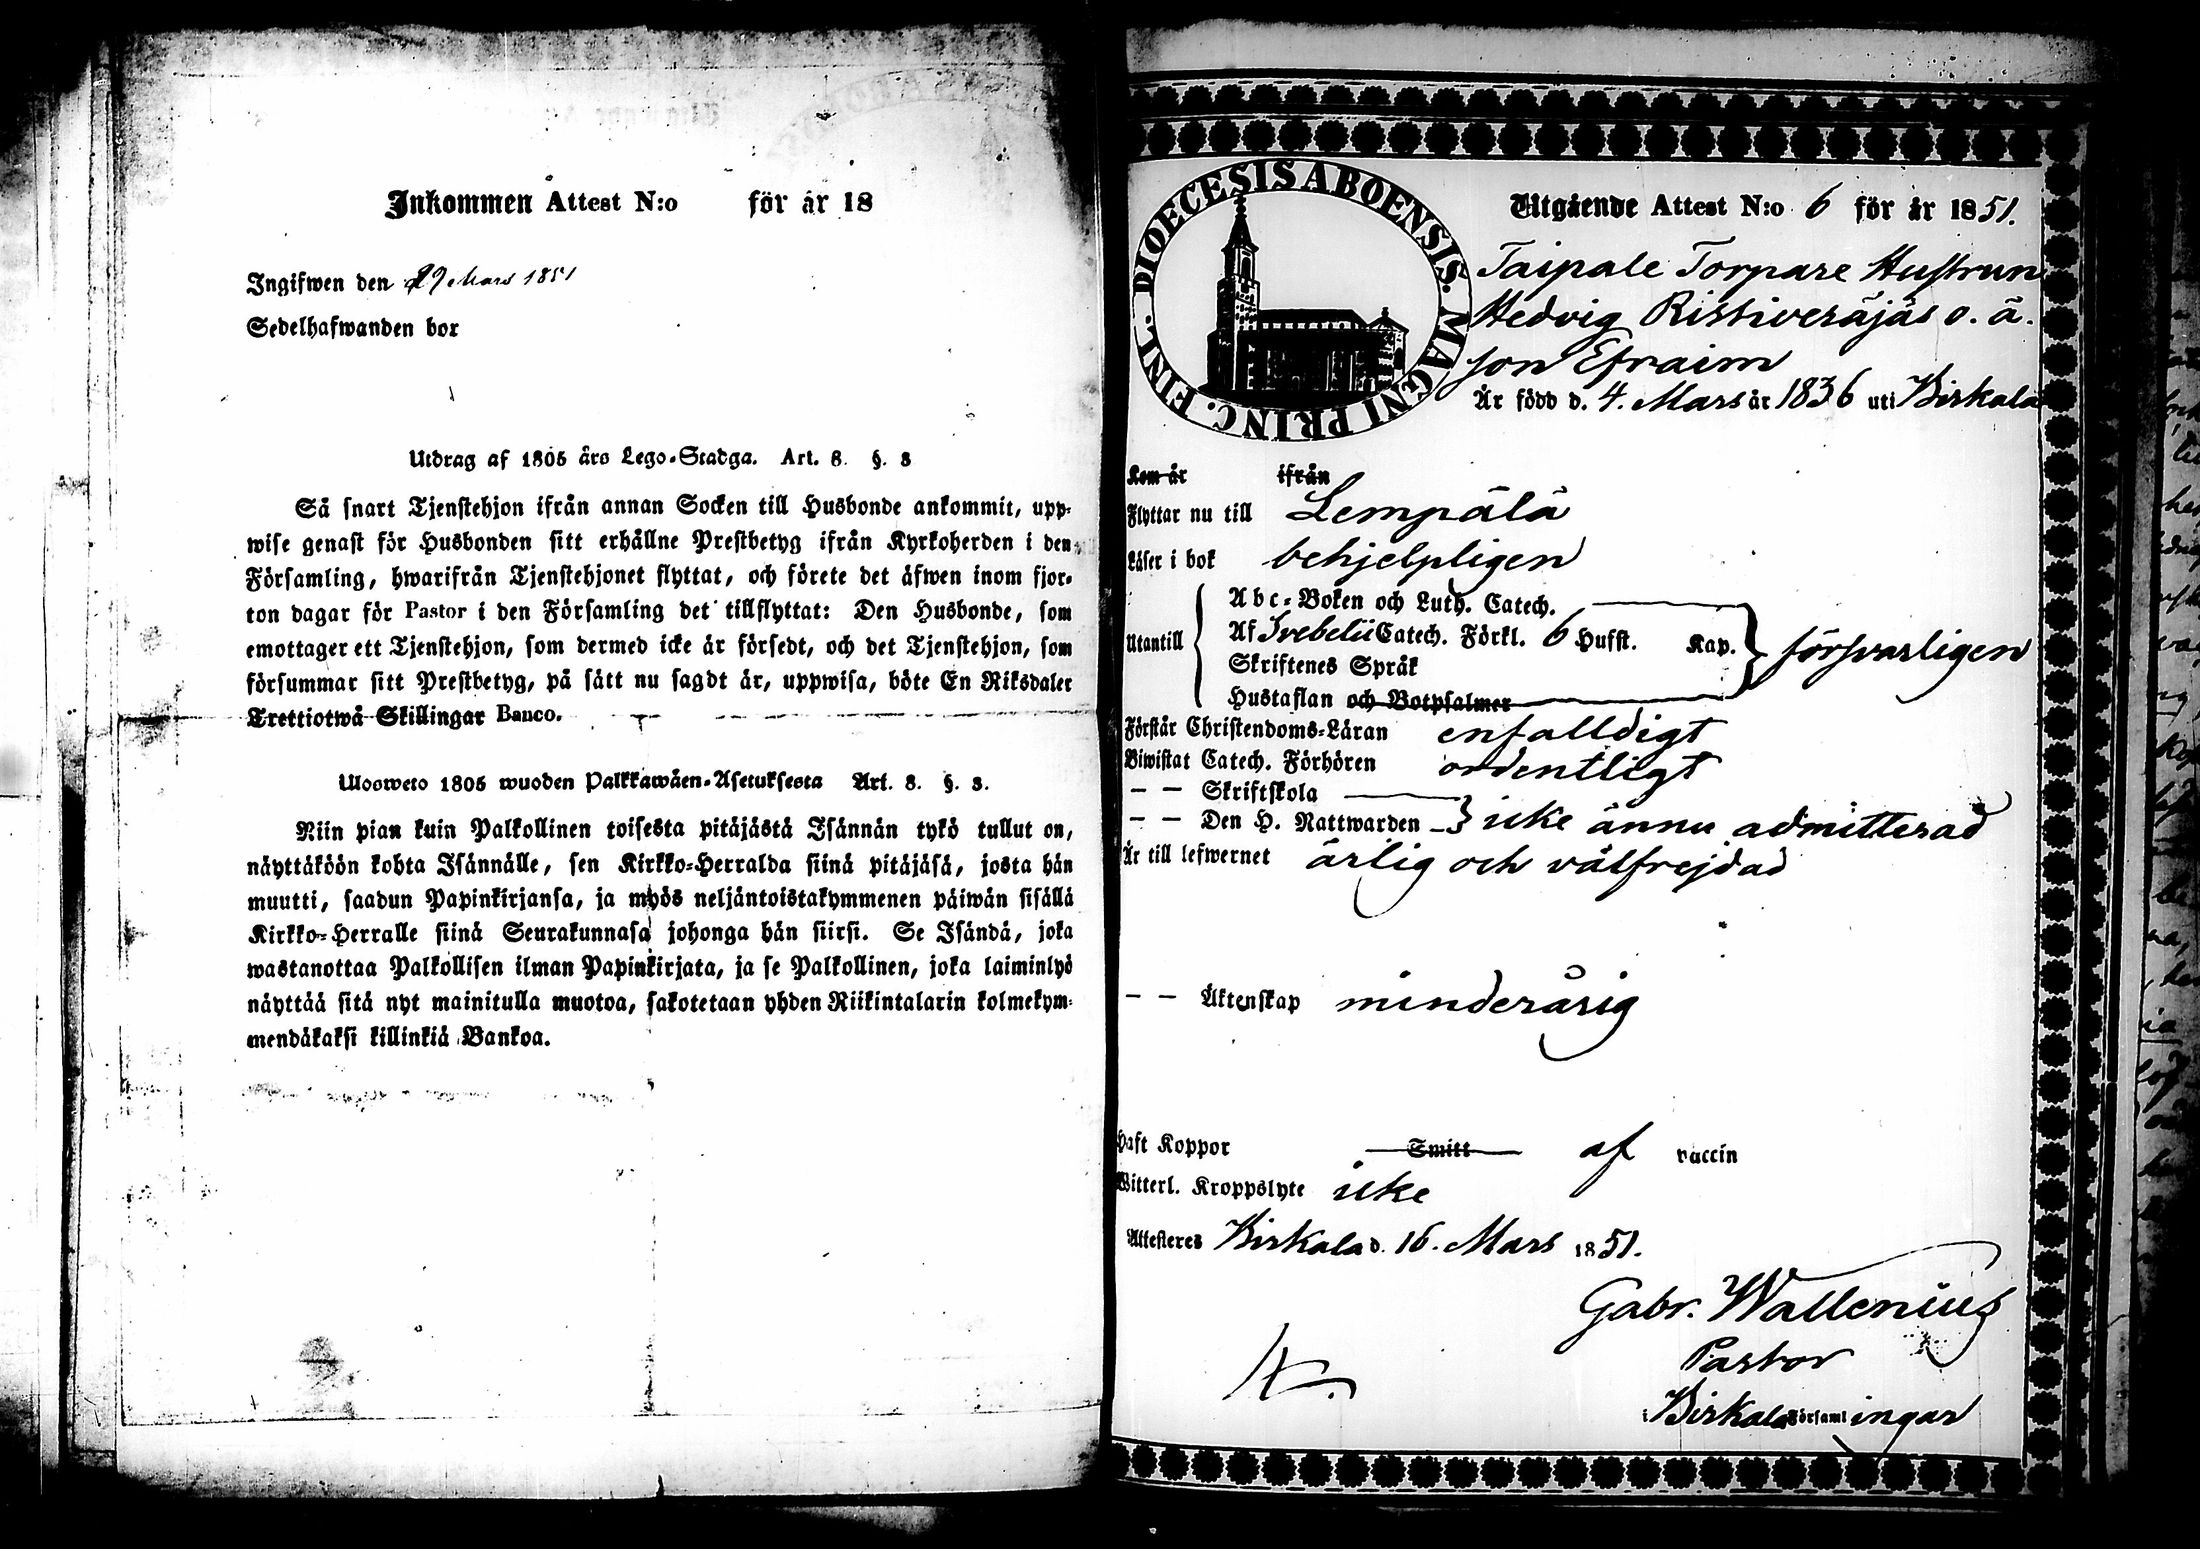 Inkommen Attest N:o för år 18
Ingifwen den 29 Mars 1851
Sedelhafwanden bor
Utdrag af 1805 års Lego-Stadga. Art. 8. §. 3
Så snart Tjenstehjon ifrån annan Socken till Husbonde ankommit, upp-
wise genast för Husbonden sitt erhållne Prestbetyg ifrån Kyrkoherden i den
Församling, hwarifrån Tjenstehjonet flyttat, och förete det äfwen inom fjor-
ton dagar för Pastor i den Församling det tillflyttat: Den Husbonde, som
emottager ett Tjenstehjon, som dermed icke är försedt, och det Tjenstehjon, som
försummar sitt Prestbetyg, på sätt nu sagdt är, uppwisa, böte En Riksdaler
Trettiotwå Skillingar Banco.
Ulosweto 1805 wuoden Palkkawäen-Asetuksesta Art. 8. §. 3.
Niin pian kuin Palkollinen toisesta pitäjästä Isännän tykö tullut on,
näyttäköön kohta Isännälle, sen Kirkko-Herralda siinä pitäjäsä, josta hän
muutti, saadun Papinkirjansa, ja myös neljäntoistakymmenen päiwän sisällä
Kirkko-Herralle siinä Seurakunnasa johonga hän siirsi. Se Isändä, joka
wastanottaa Palkollisen ilman Papinkirjata, ja se Palkollinen, joka laiminlyö
näyttää sitä nyt mainitulla muotoa, sakotetaan yhden Riikintalarin kolmekym-
mendäkaksi killinkiä Bankoa.
DIOECESIS ABOENSIS. MAGNI PRINC. FINL.
Utgående Attest N:o 6 för år 1851.
Taipale Torpare Hustrun
Hedvig Ristiveräjäs o. ä.
son Efraim
Är född d. 4. Mars år 1836 uti Birkala
Kom år ifrån
Flyttar nu till Lempälä
Läser i bok behjelpligen
Abc-Boken och Luth. Catech.
Utantill Af Svebelii Catech. Förkl. 6 Hufst. Kap. försvarligen
Skriftenes Språk
Hustaflan och Botpsalmer
Förstår Christendoms-Läran enfalldigt
Biwistat Catech. Förhören ordentligt
— — Skriftskola
— — Den H. Nattwarden icke ännu admitterad
Är till lefwernet ärlig och välfrejdad
— — Äktenskap minderårig
Haft Koppor Smitt af vaccin
Witterl. Kroppslyte icke
Attesteres Birkala d. 16. Mars 1851.
Gabr. Wallenius
Pastor
i Birkala Församlingar